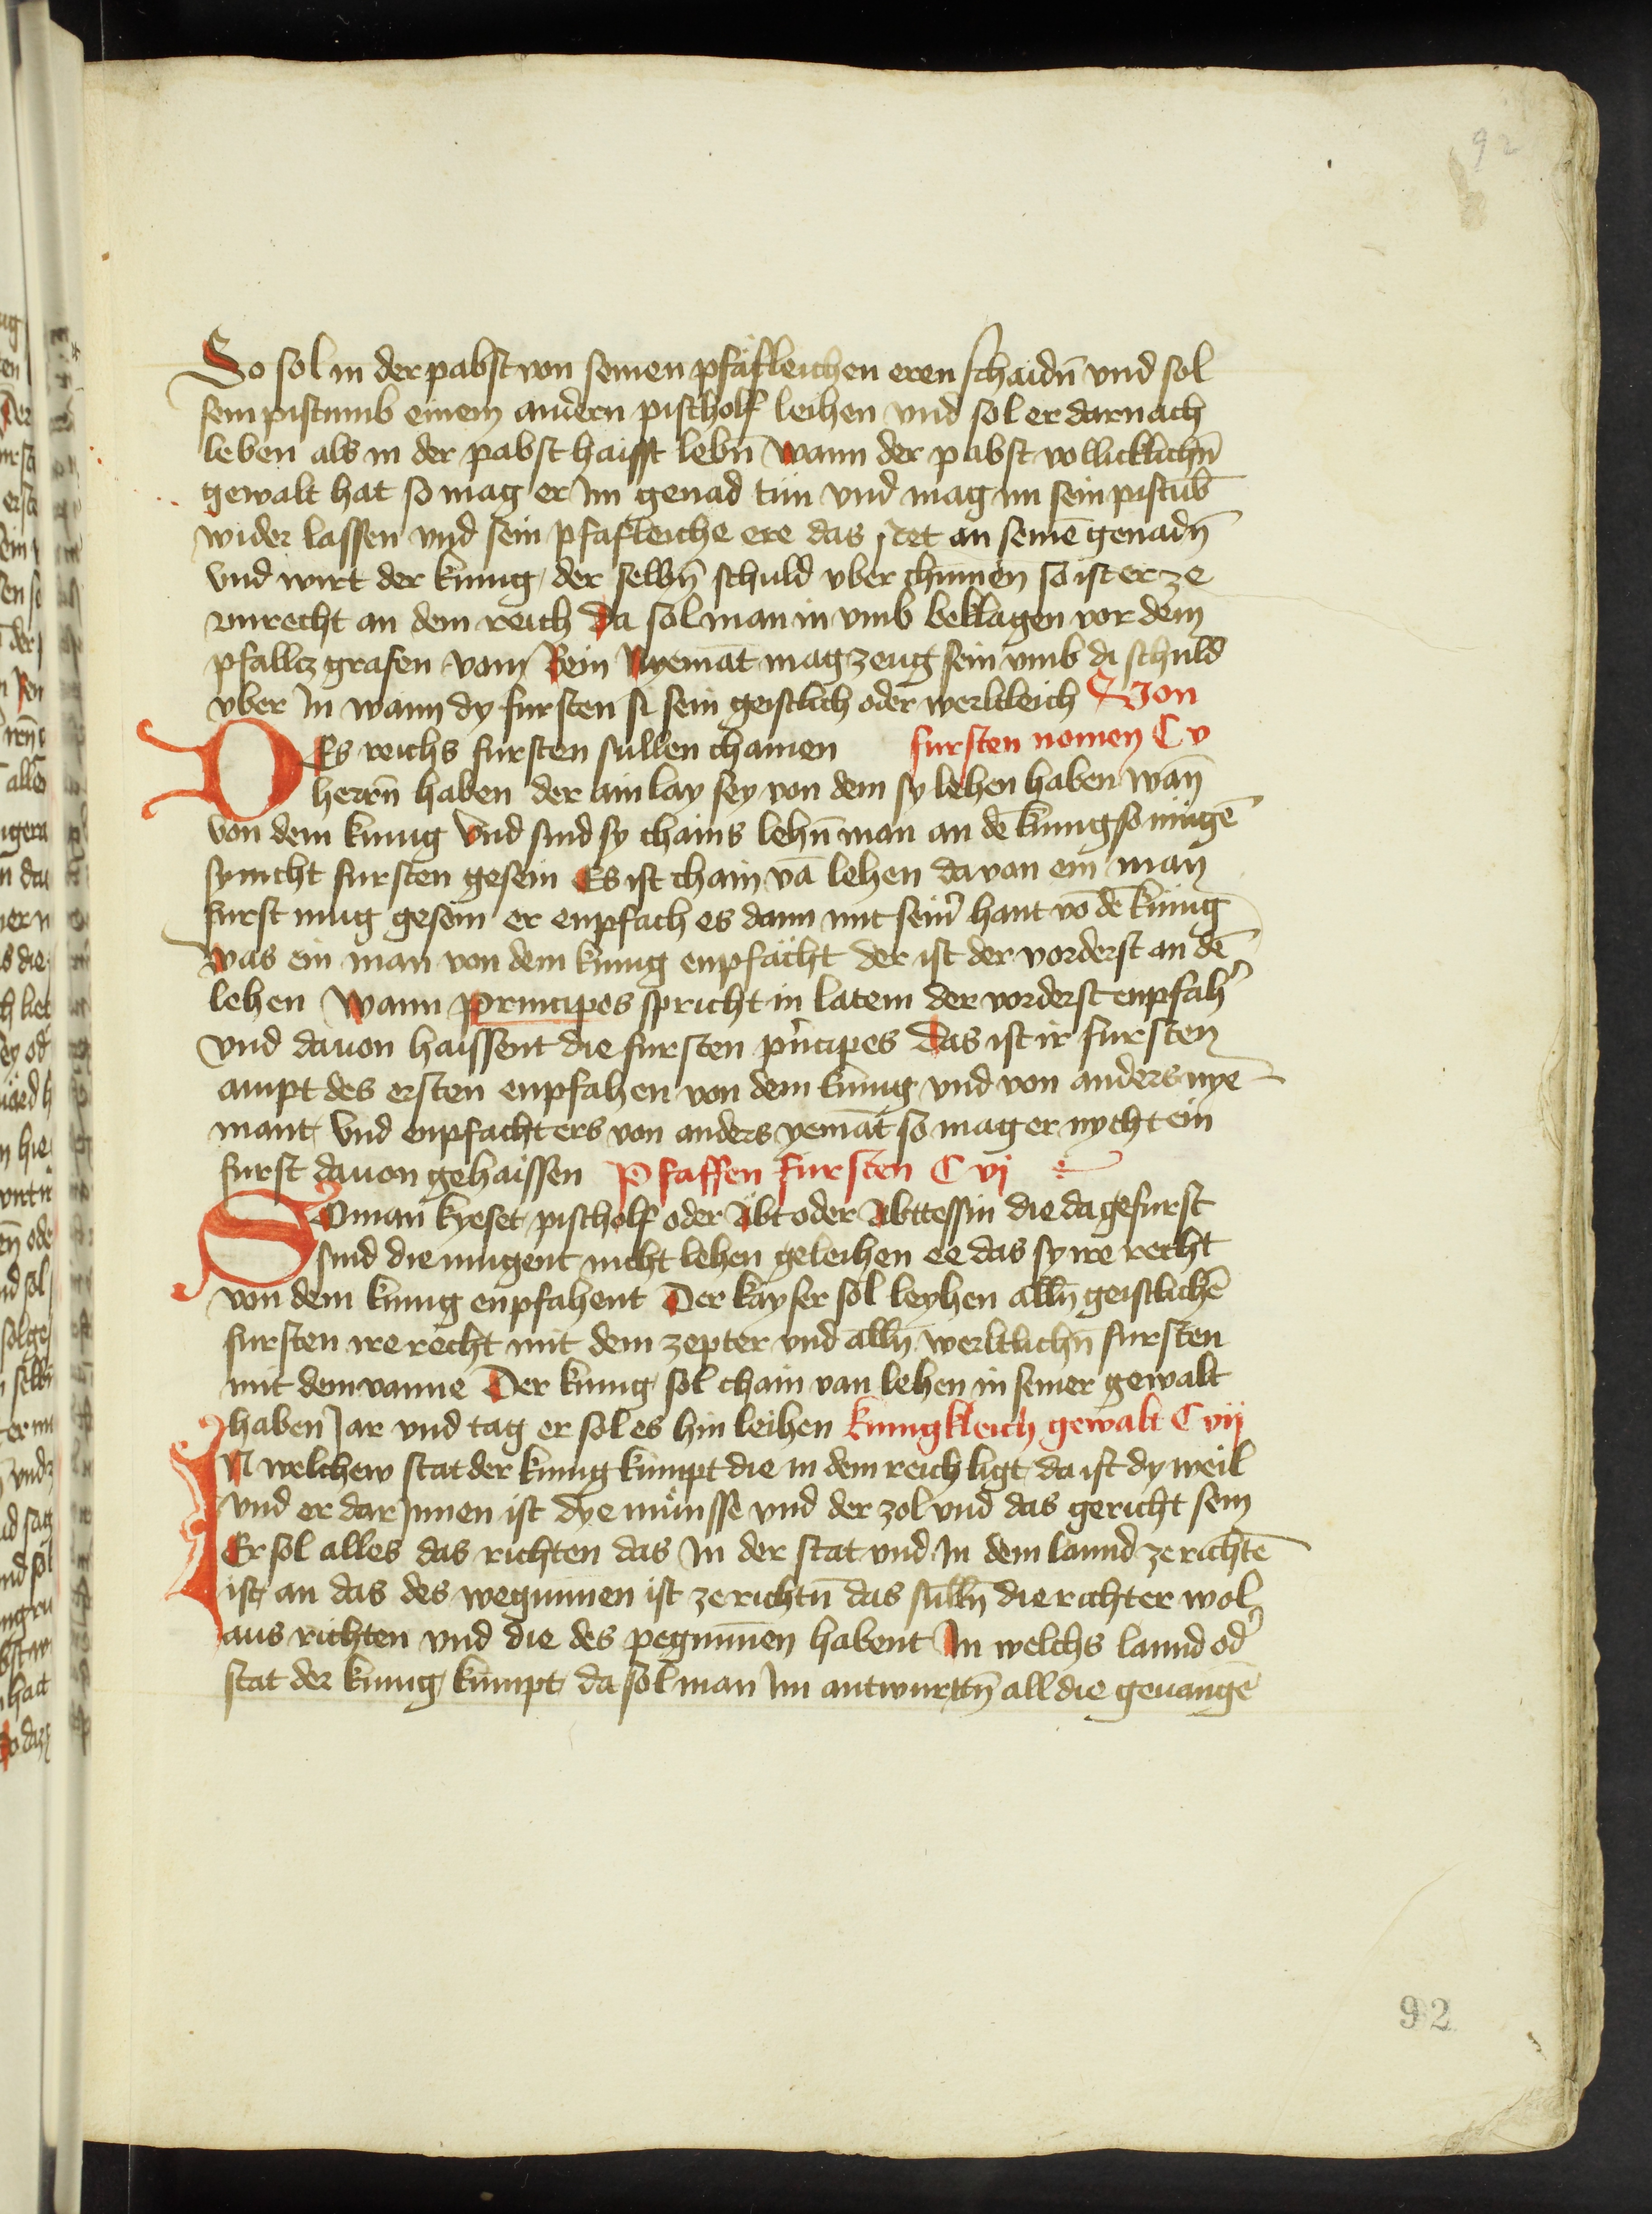 92
So sol in der pabst von seinen pfäfleichen eren schaidn̄ vnd sol
sein pistumb einem andern pischolf leihen vnd sol er darnach
leben als in der pabst haisst lebn̄ Wann der pabst vollicklichn̄
gewalt hat so mag er Im genad tün vnd mag im sein pistūb
wider lassen vnd sein pfäfleiche ere das stet an seinē genadn̄
vnd wirt der kunig der selbn̄ schuld vber chumen so ist er ze
vnrecht an dem reich Da sol man in vmb beklagen vor dem
pfalltz grafen vom Rein Nyemāt mag zeug sein vmb di schuld
vber In wann dy fursten si sein geistlich oder werltleich Von
DEs reichs fursten sullen chainen fursten nomen C v
herrn̄ haben der ain lay sey von dem sy lehen haben wan̄
von dem kunig Vnd sind sy chains lehn̄ man an dē kunig so mügē
sy nicht fursten gesein Es ist chain vā lehen da von ein man
furst mug gesein er enpfach es dann mit sein̄ hant vō dē kunig
Was ein man von dem kunig enpfächt der ist der vorderst an dē
lehen Wann principes spricht in latein der vorderst enpfah̄
vnd dauon haissent die fursten p̄ncipes Das ist ir fursten
ampt des ersten enpfahen von dem kunig vnd von anders nye
mant Vnd enpfacht ers von anders yemāt so mag er nycht ein
furst dauon gehaissen Pfaffen fursten C vj
SO man kyeset pischolf oder Äbt oder Abttessin die da gefurst
sind die mugent nicht lehen geleihen ee das sy ire recht
von dem kunig enpfahent Der kayser sol leyhen alln̄ geistlichē
fursten ire recht mit dem zepter vnd alln̄ werltlichn̄ fursten
mit dem vanne Der kunig sol chain van lehen in seiner gewalt
haben Jar vnd tag er sol es hin leihen kunigkleich gewalt C vij
IN welchew stat der kunig kumpt die in dem reich ligt da ist dy weil
vnd er dar Innen ist dye münsse vnd der zol vnd das gericht sein
Er sol alles das richten das In der stat vnd In dem lannd ze richtē
ist an das des wegunnen ist ze richtn̄ das sulln̄ die richter wol
aus richten vnd die des pegunnen habent In welchs lannd od̄
stat der kunig kumpt da sol man Im antwurttn̄ all die geuangē
92